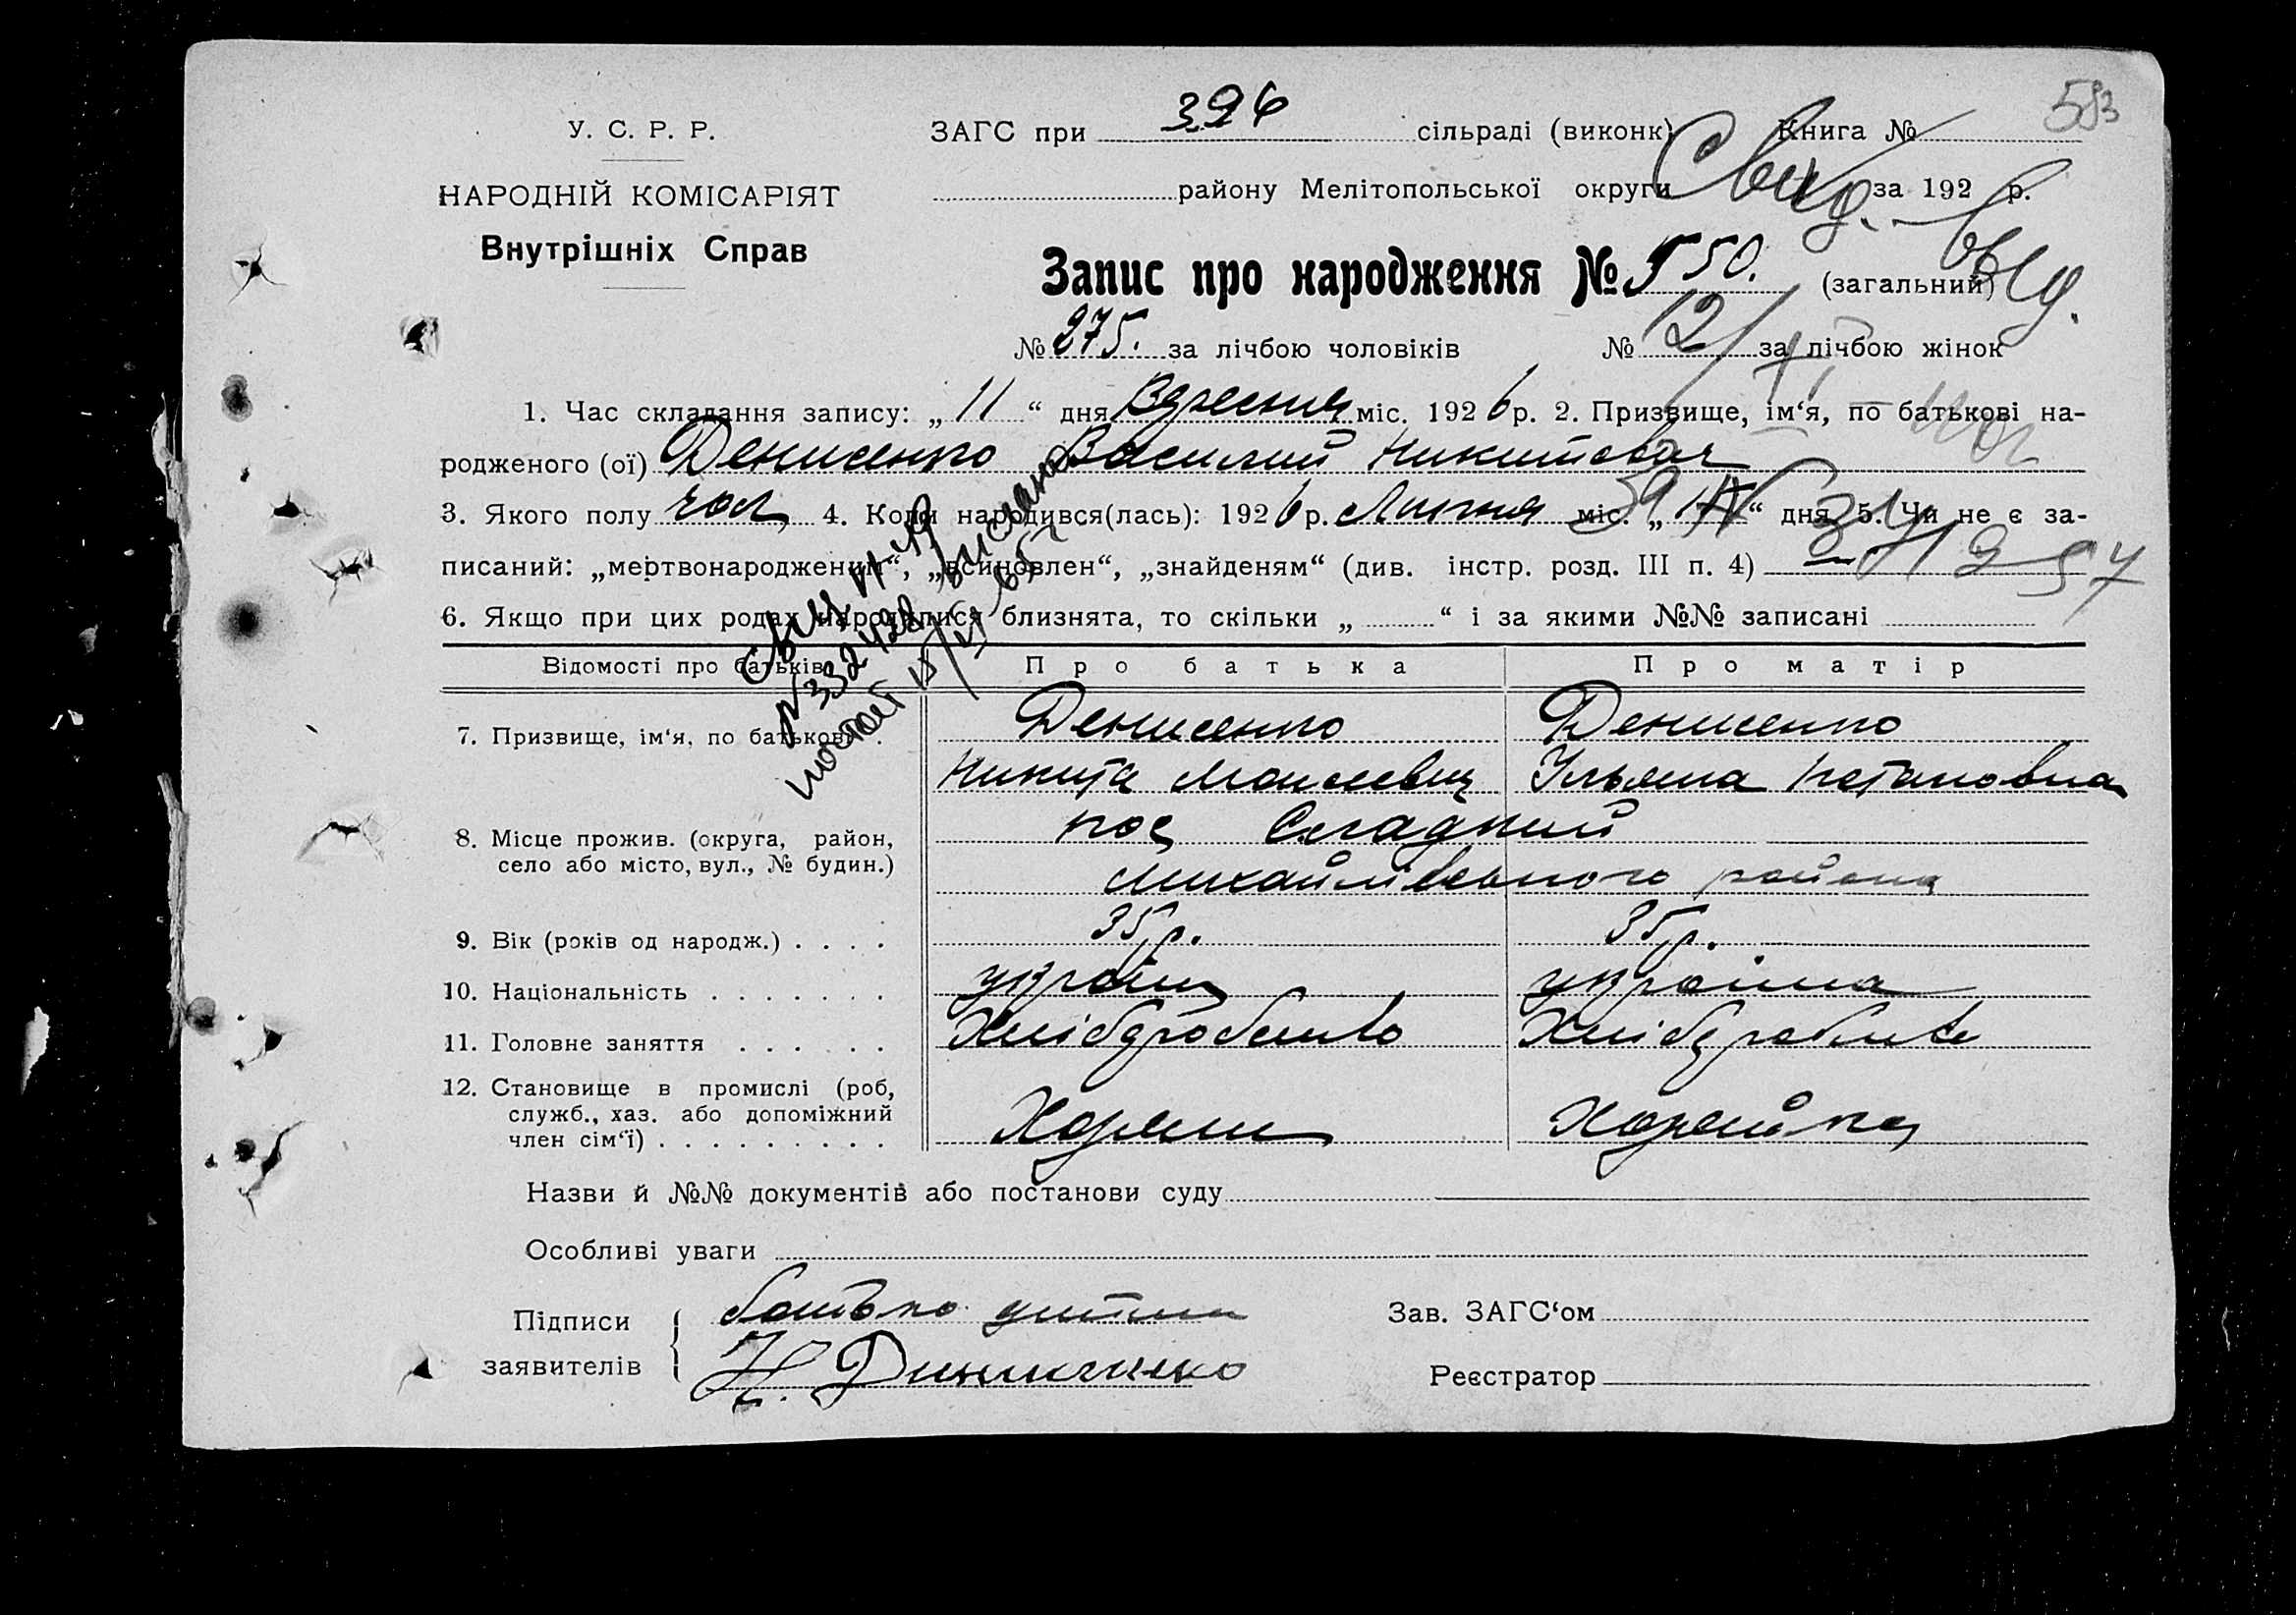 583
У. С. Р. Р.
НАРОДНІЙ КОМІСАРІЯТ
Внутрішніх Справ
ЗАГС при 396 сільраді (виконк) Книга №
району Мелітопольської округи за 192 р.
Свид.
Запис про народження № 550. (загальний)
№ 275. за лічбою чоловіків № за лічбою жінок
1. Час складання запису: „ 11 “ дня Вересня міс. 1926 р. 2. Призвище, ім‘я, по батькові на-
родженого (ої) Денисенко Василий Никитович
3. Якого полу чол, 4. Коли народився(лась): 1926 р. Липня міс. „ “ дня 5. Чи не є за-
писаний: „мертвонароджений“, „всиновлен“, „знайденям“ (див. інстр. розд. III п. 4)
6. Якщо при цих родах народилися близнята, то скільки „ “ і за якими №№ записані
Відомості про батьків Про батька Про матір
7. Призвище, ім‘я, по батькові . Денисенко Денисенко
Никита Моисеевич Ульяна
8. Місце прожив. (округа, район, пос Сладкий
село або місто, вул., № будин.) Михайлівського району
9. Вік (років од народж.) . . . . 35 р. 35 р.
10. Національність . . . . . . . україн україна
11. Головне заняття . . . . . . Хлібороbство Хлібороbство
12. Становище в промислі (роб,
служб., хаз. або допоміжний Хозяин Хозяйка
член сім‘ї) . . . . . . . . .
Назви й №№ документів або постанови суду
Особливі уваги
Підписи батько дитини Зав. ЗАГС‘ом
заявителів Н. Реєстратор